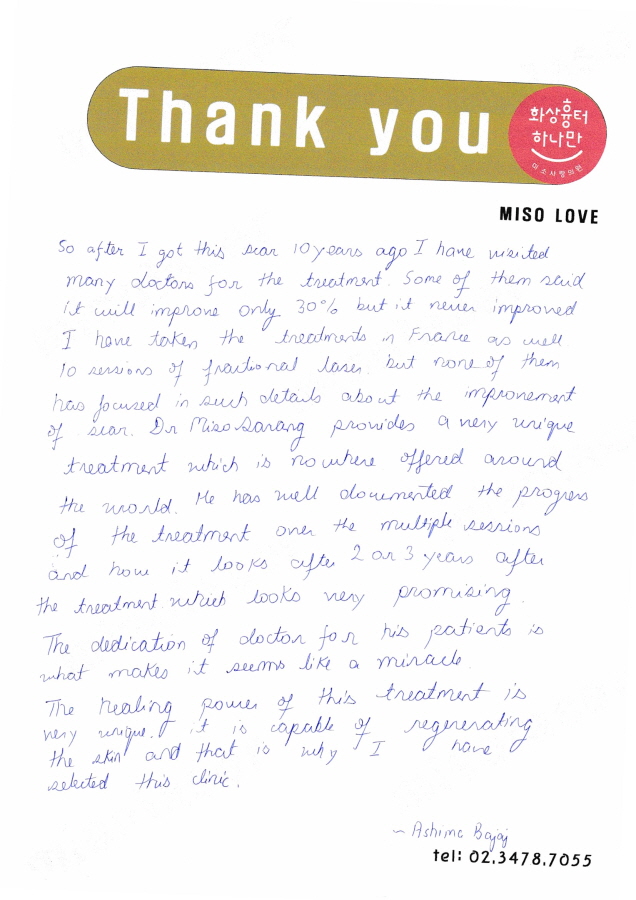 Thank you
화상흉터
하나만
미소사랑의원
MISO LOVE
So after I got this scar 10 years ago I have visited
many doctors for the treatment. Some of them said
it will improve only 30% but it never improved
I have taken the treatments in France as well
10 sessions of fractional laser. but none of them
has focused in such details about the improvement
of scar. Dr Miso Sarang provides a very unique
treatment which is nowhere offered around
the world. He has well documented the progress
of the treatment over the multiple sessions
and how it looks after 2 or 3 years after
the treatment which looks very promising.
The dedication of doctor for his patients is
what makes it seems like a miracle.
The healing power of this treatment is
very unique. it is capable of regenerating
the skin and that is why I have
selected this clinic.
~ Ashime Bajaj
tel: 02.3478.7055